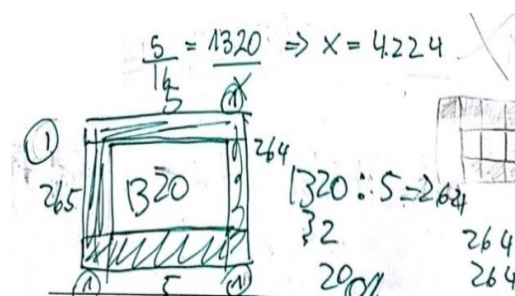 5/16 = 1320/x => x = 4.224
5 1
1
265 1320 264
1320 : 5 = 264
32 264
20 264
1 5 1